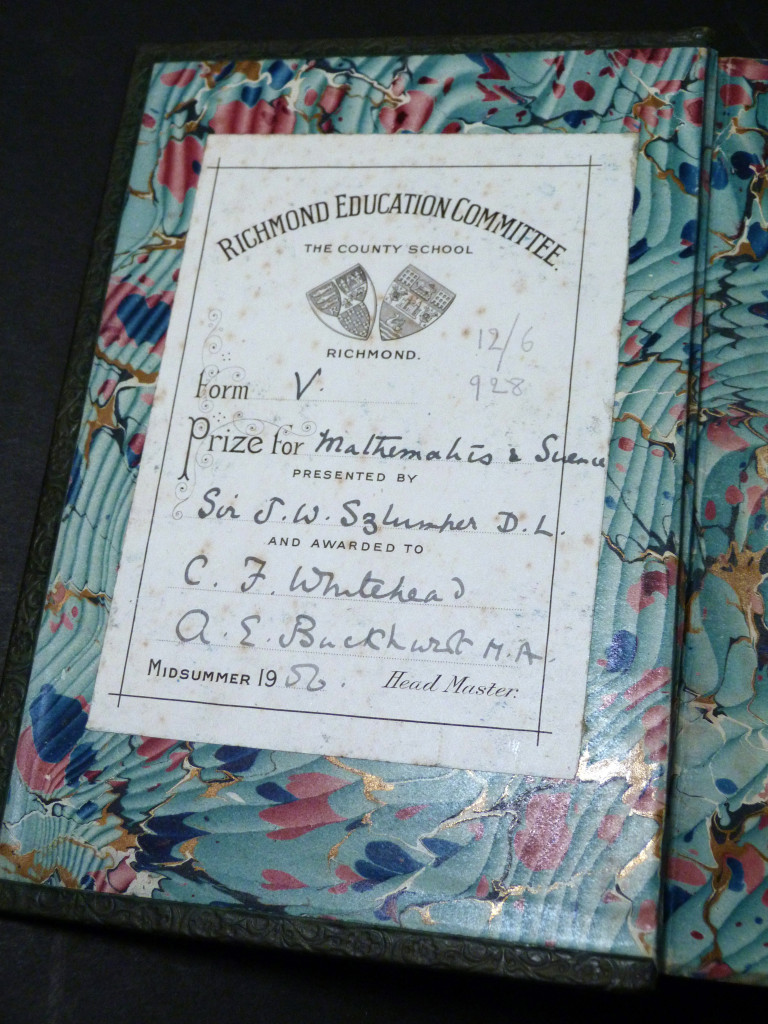 RICHMOND EDUCATION COMMITTEE.
THE COUNTY SCHOOL
RICHMOND.
12/6
Form V.
928
Prize for Mathematics & Science
PRESENTED BY
Sir J. W. Szlumper D. L.
AND AWARDED TO
C. F. Whitehead
A. E. Buckhurst M.A.
MIDSUMMER 19 Head Master.